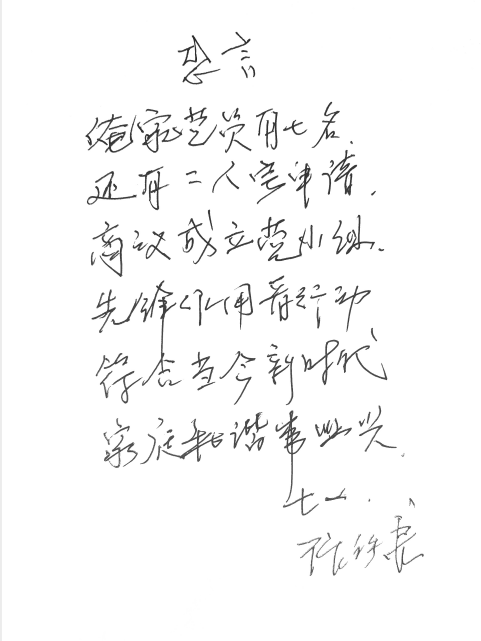 感言
俺家党员有七名.
还有二人写申请.
商议成立党小组.
先锋作用看行动
符合当今新时代
家庭和谐事业兴.
七一.